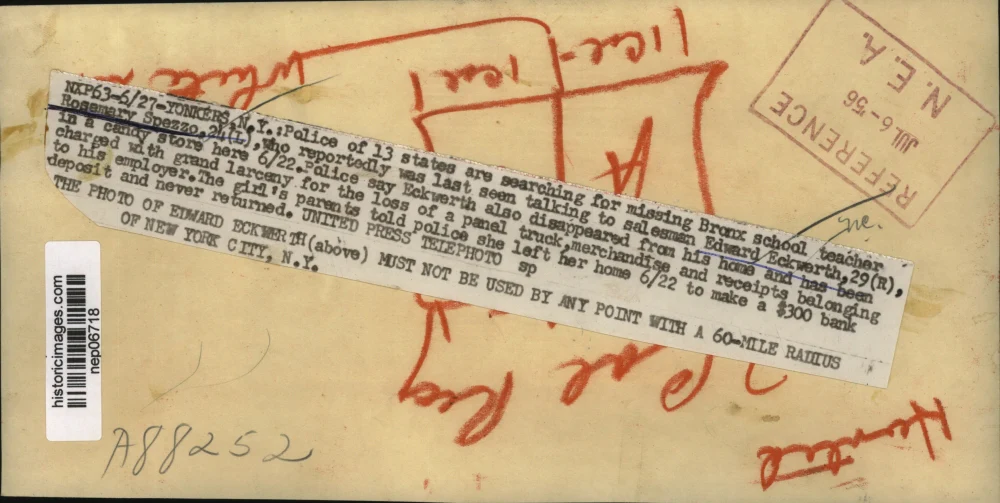 NXP63-6/27-YONKERS,N.Y.:Police of 13 states are searching for missing Bronx school teacher
Rosemary Spezzo,24(L),who reportedly was last seen talking to salesman Edward Eckwerth,29(R),
in a candy store here 6/22.Police say Eckwerth also disappeared from his home and has been
charged with grand larceny for the loss of a panel truck,merchandise and receipts belonging
to his employer.The girl's parents told police she left her home 6/22 to make a $300 bank
deposit and never returned. UNITED PRESS TELEPHOTO sp
THE PHOTO OF EDWARD ECKWERTH(above) MUST NOT BE USED BY ANY POINT WITH A 60-MILE RADIUS
OF NEW YORK CITY, N.Y.
REFERENCE
JUL 6-'56
N. E. A.
historicimages.com
nep06718
A88252
White
A
Hunted